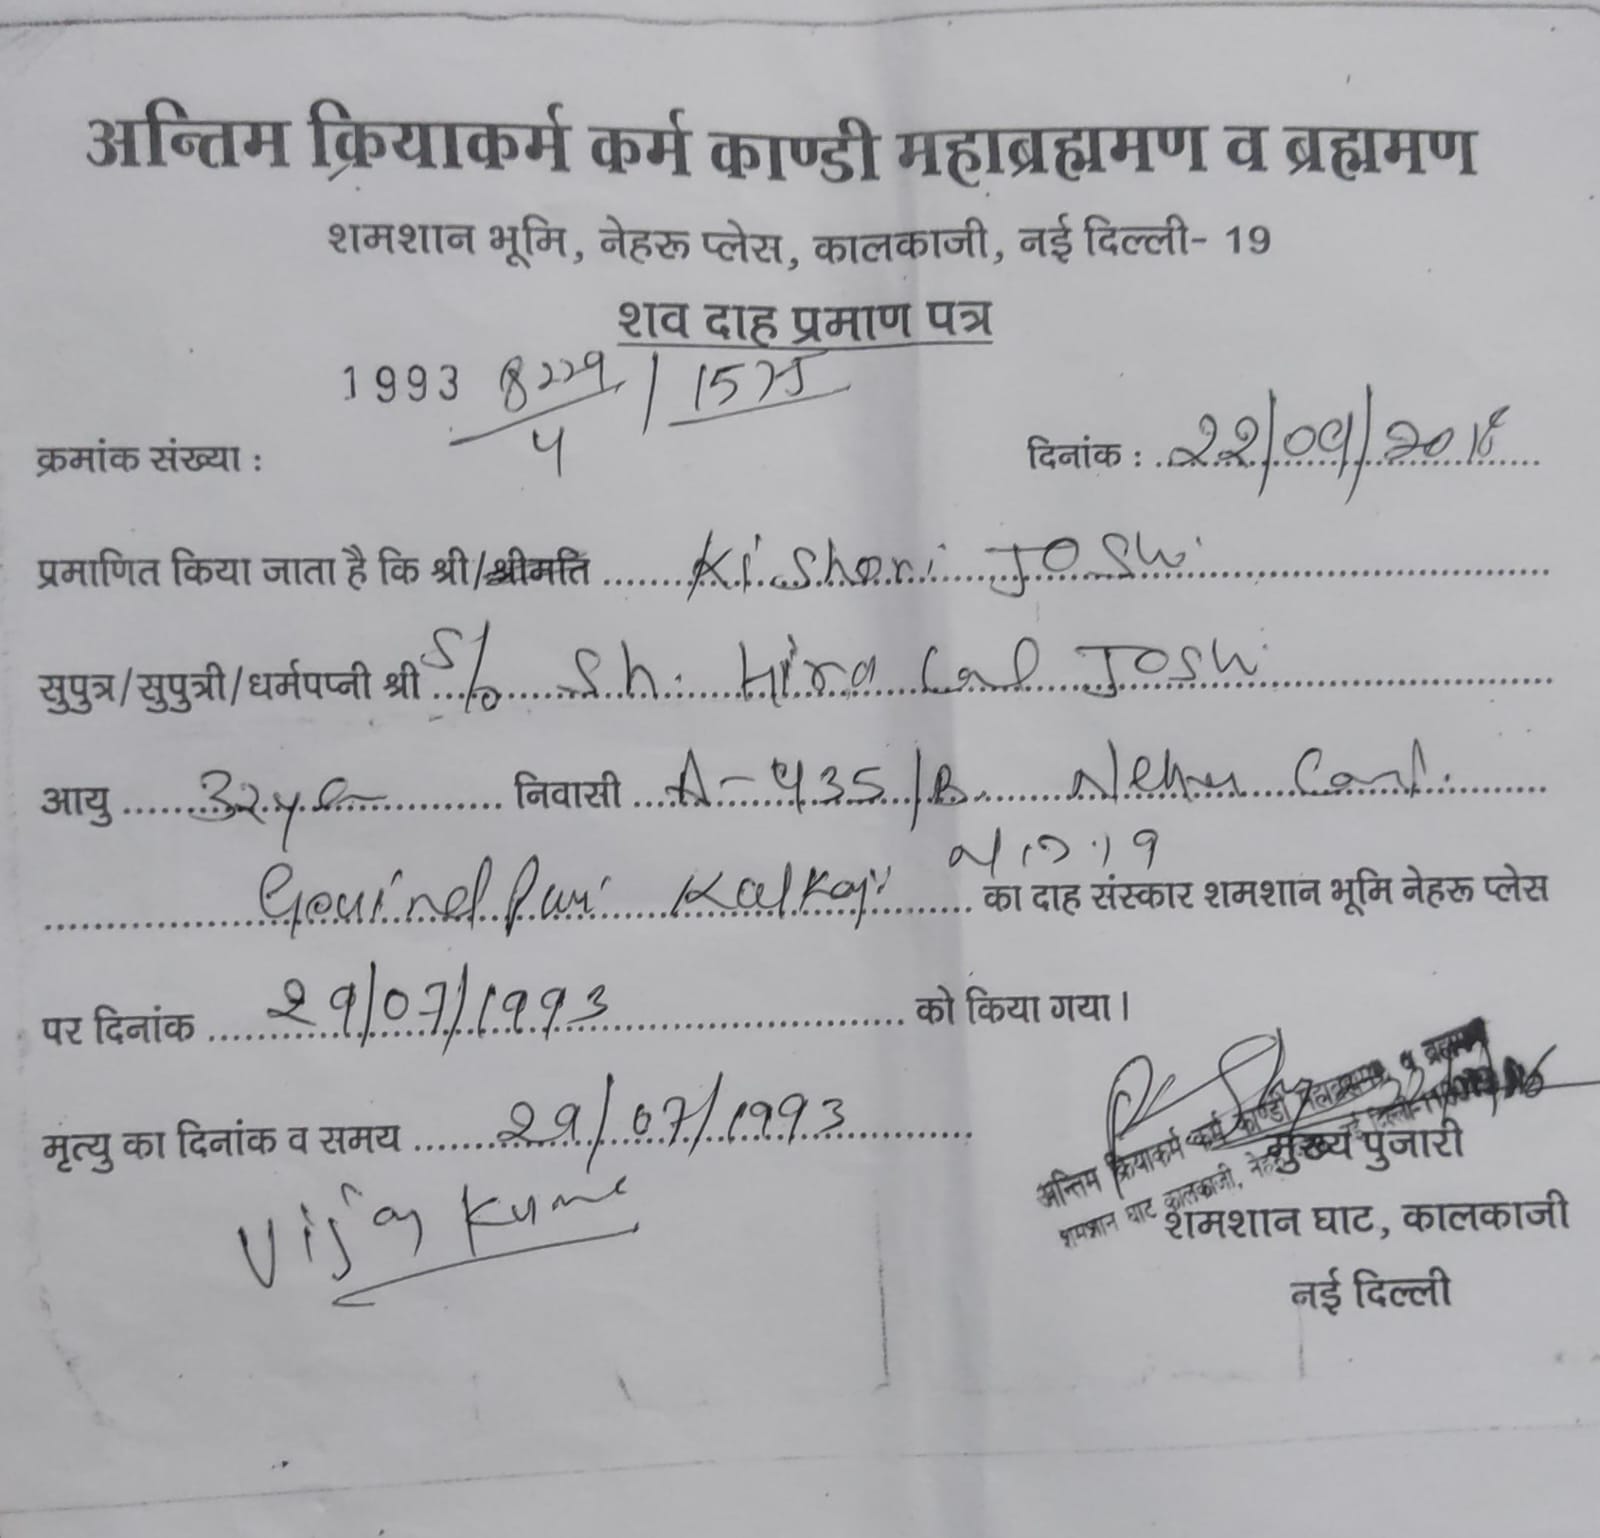 अन्तिम क्रियाकर्म कर्म काण्डी महाब्रह्ममण व ब्रह्ममण
शमशान भूमि, नेहरू प्लेस, कालकाजी, नई दिल्ली- 19
शव दाह प्रमाण पत्र
1993 8229/4 / 1575
क्रमांक संख्या : दिनांक : 22/09/2018
प्रमाणित किया जाता है कि श्री/श्रीमति Kishori JOShi
सुपुत्र/सुपुत्री/धर्मपप्नी श्री S/o Sh. Hira Lal JOShi
आयु 32 निवासी A-435/B. Nehru
N.D.19
Govind Puri Kalkaji का दाह संस्कार शमशान भूमि नेहरू प्लेस
पर दिनांक 29/07/1993 को किया गया।
मृत्यु का दिनांक व समय 29/07/1993
Vijay Kumar
अन्तिम क्रियाकर्म कर्म काण्डी महाब्रह्ममण व ब्रह्ममण
शमशान घाट कालकाजी,
मुख्य पुजारी
शमशान घाट, कालकाजी
नई दिल्ली